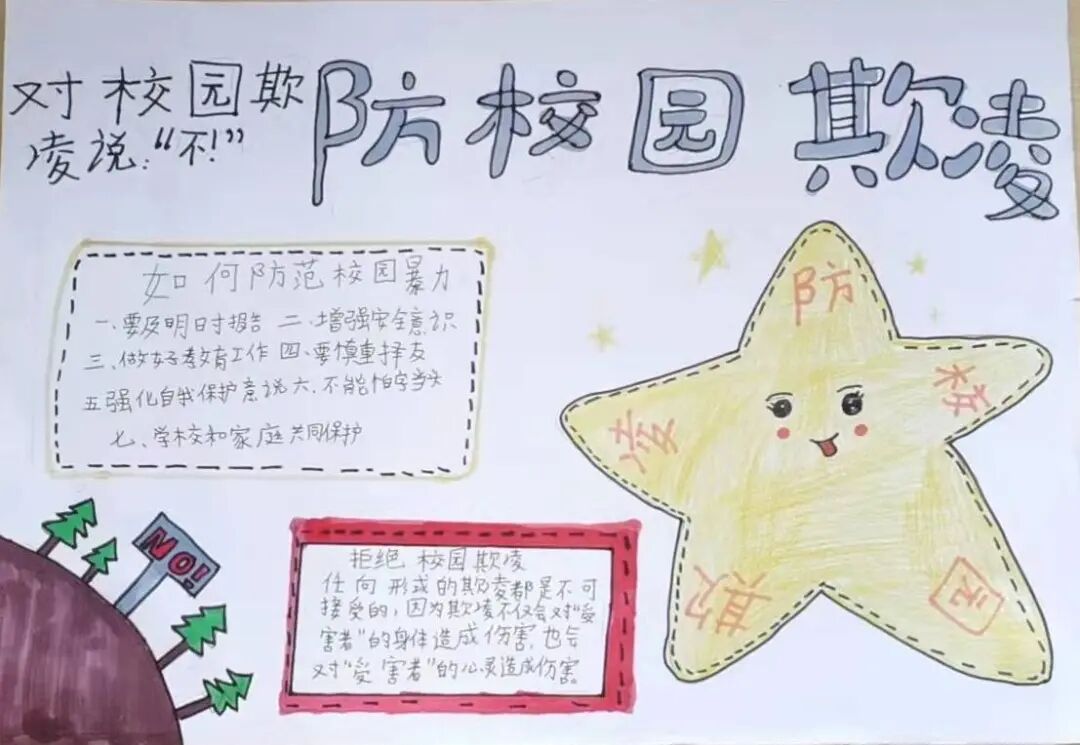 对校园欺
凌说:“不!”
防校园欺凌
如何防范校园暴力
一、要及明日时报告 二、增强安全意识
三、做好教育工作 四、要慎重择友
五强化自我保护意识 六、不能怕字当头
七、学校和家庭共同保护
防
校
园
欺
凌
NO!
拒绝校园欺凌
任何形式的欺凌都是不可
接受的,因为欺凌不仅会对“受
害者”的身体造成伤害,也会
对“受害者”的心灵造成伤害。